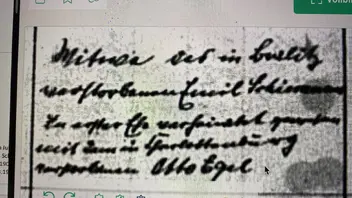 Witwe des in Beelitz
verstorbenen Emil Schie
In erster Ehe verheiratet gewesen
mit dem in Charlottenburg
verstorbenen Otto Egel